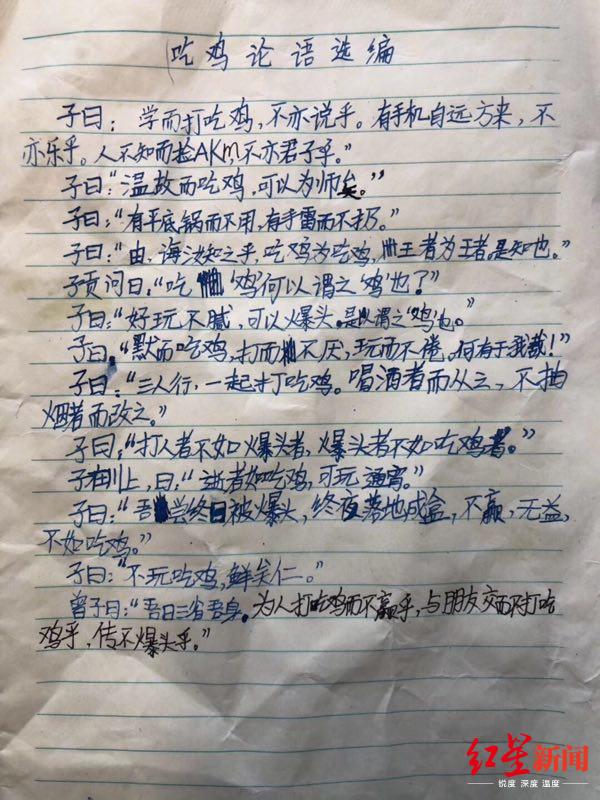 吃鸡论语选编
子曰：学而打吃鸡，不亦说乎。有手机自远方来，不
亦乐乎。人不知而捡AKM，不亦君子乎。”
子曰：“温故而吃鸡，可以为师矣。”
子曰：“有平底锅而不用，有手雷而不扔。”
子曰：“由，诲汝知之乎，吃鸡为吃鸡，王者为王者，是知也。”
子贡问曰：“吃‘鸡’何以谓之‘鸡’也？”
子曰：“好玩不腻，可以爆头。是以谓之‘鸡’也。”
子曰：“默而吃鸡，打而不厌，玩而不倦，何有于我哉！”
子曰：“三人行，一起打吃鸡。喝酒者而从之，不抽
烟者而改之。”
子曰：“打人者不如爆头者，爆头者不如吃鸡者。”
子在川上，曰：“逝者如吃鸡，可玩通宵。”
子曰：“吾尝终日被爆头，终夜落地成盒，不赢，无益，
不如吃鸡。”
子曰：“不玩吃鸡，鲜矣仁。”
曾子曰：“吾日三省吾身。为人打吃鸡而不赢乎，与朋友交而不打吃
鸡乎，传不爆头乎。”
红星新闻
锐度 深度 温度